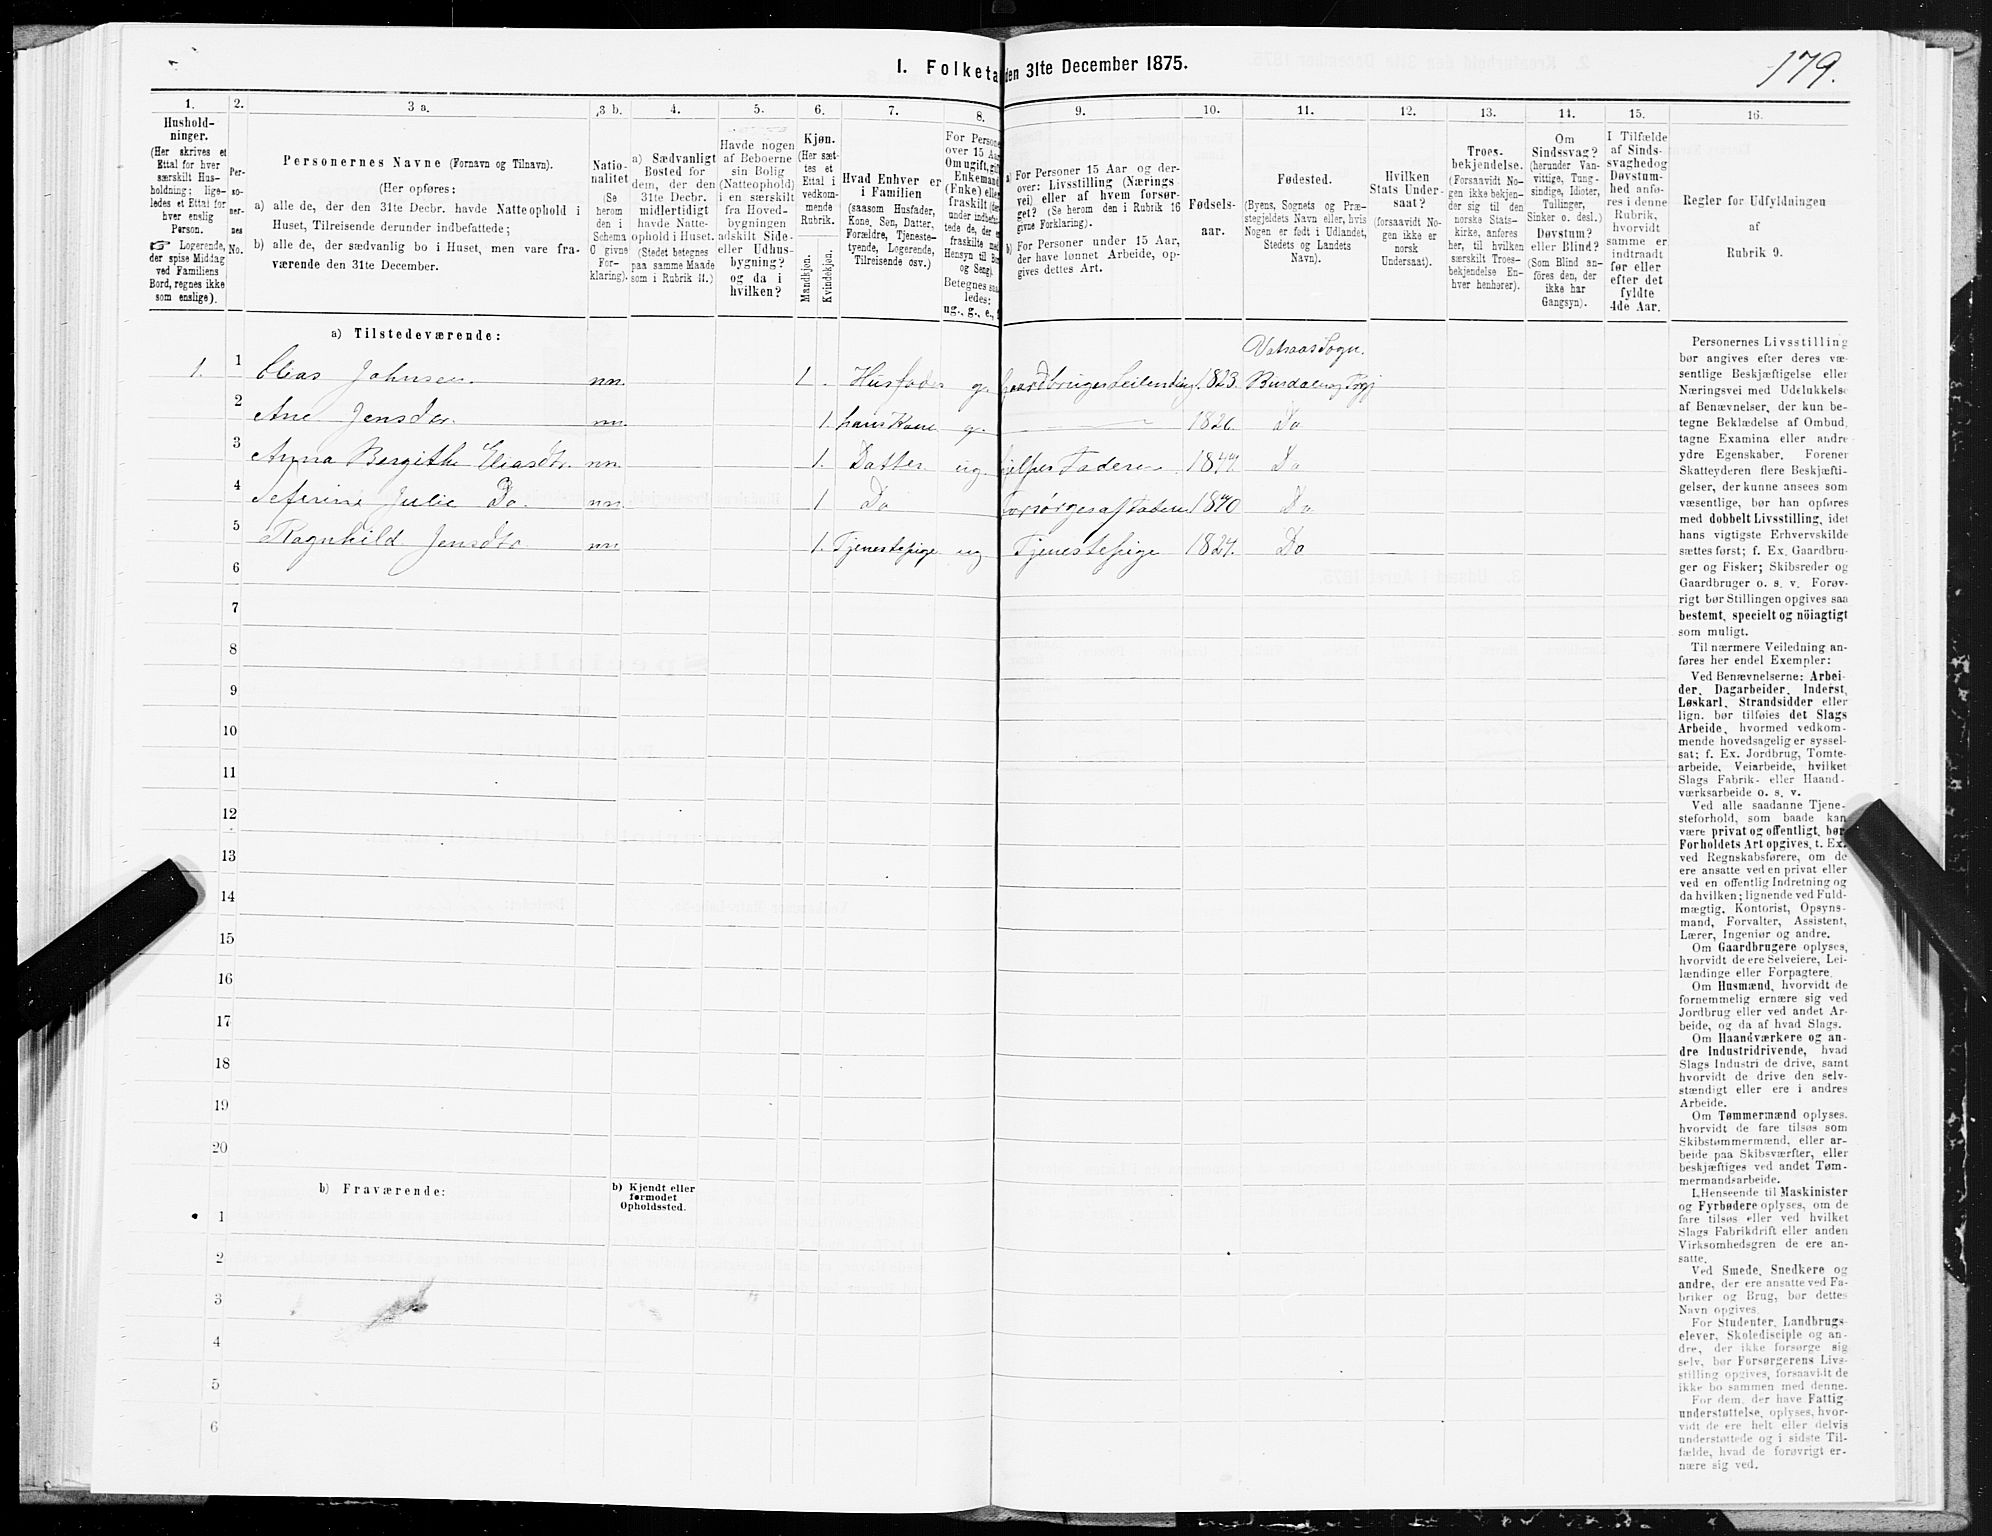 I. Folketa den 31te December 1875.
179.
1.
2.
3 a.
3 b.
4.
5.
6.
7.
8.
9.
10.
11.
12.
13.
14.
15.
16.
Hushold-
ninger.
(Her skrives et
Ettal for hver
særskilt Hus-
holdning; lige-
ledes et Ettal for
hver enslig
Person.
☞ Logerende,
der spise Middag
ved Familiens
Bord, regnes ikke
som enslige).
Per-
so-
ner-
nes
No.
Personernes Navne (Fornavn og Tilnavn).
(Her opføres:
a) alle de, der den 31te Decbr. havde Natteophold i
Huset, Tilreisende derunder indbefattede;
b) alle de, der sædvanlig bo i Huset, men vare fra-
værende den 31te December.
Natio-
nalitet
(Se
herom
den i
Schema
O givne
For-
klaring).
a) Sædvanligt
Bosted for
dem, der den
31te Decbr.
midlertidigt
havde Natte-
ophold i Huset.
(Stedet betegnes
paa samme Maade
som i Rubrik 11.)
Havde nogen
af Beboerne
sin Bolig
(Natteophold)
i en særskilt
fra Hoved-
bygningen
adskilt Side-
eller Udhus-
bygning?
og da i
hvilken?
Kjøn.
(Her sæt-
tes et
Ettal i
vedkom-
mende
Rubrik.
Mandkjøn.
Kvindekjøn.
Hvad Enhver er
i Familien
(saasom Husfader,
Kone, Søn, Datter,
Forældre, Tjeneste-
tyende, Logerende,
Tilreisende osv.)
For Persone
over 15 Aa
Om ugift, gif
Enkemand
(Enke) elle
fraskilt
under indbefa
tede de, der e
fraskilte me
Hensyn til Bo
og Seng).
Betegnes saa
ledes:
ug., g., e., f
a) For Personer 15 Aar og der-
over: Livsstilling (Nærings
vei) eller af hvem forsør-
get? (Se herom den i Rubrik 16
givne Forklaring).
b) For Personer under 15 Aar,
der have lønnet Arbeide, op-
gives dettes Art.
Fødsels-
aar.
Fødested.
(Byens, Sognets og Præ-
stegjeldets Navn eller, hvis
Nogen er født i Udlandet,
Stedets og Landets
Navn).
Hvilken
Stats Under-
saat?
(forsaavidt No-
gen ikke er
norsk
Undersaat).
Troes-
bekjendelse.
(Forsaavidt No-
gen ikke bekjen-
der sig til den
norske Stats-
kirke, anføres
her, til hvilken
særskilt Troes-
bekjendelse En-
hver henhører).
Om
Sindssvag?
(herunder Van-
vittige, Tung-
sindige, Idioter,
Tullinger,
Sinker o. desl.)
Døvstum?
eller Blind?
(Som Blind an-
føres den, der
ikke har
Gangsyn).
I Tilfælde
af Sinds-
svaghed og
Døvstum-
hed anfø-
res i denne
Rubrik,
hvorvidt
samme er
indtraadt
før eller
efter det
fyldte
4de Aar.
Regler for Udfyldningen
af
Rubrik 9.
a) Tilstedeværende:
1. 1 Elias Johnsen nn. 1. Husfader g. Gaardbruger Leilending 1823.
2 Ane Jensdr. nn. 1. hans Kone g. 1826. Do
3 Anna Bergithe Eliasdtr. nn. 1. Datter ug. hjelper Faderen 1844. Do
4 Sefrine Julie Do nn. 1 Do forsørges af Faderen 1870 Do
5 Ragnhild Jensdtr nn 1. Tjenestepige ug Tjenestepige 1827. Do
6
7
8
9
10
11
12
13
14
15
16
17
18
19
20
b) Fraværende:
b) Kjendt eller
formodet
Opholdssted.
1
2
3
4
5
6
Personernes Livsstilling
bør angives efter deres væ-
sentlige Beskjæftigelse eller
Næringsvei med Udelukkelse
af Benævnelser, der kun be-
tegne Beklædelse af Ombud,
tagne Examina eller andre
ydre Egenskaber. Forener
Skatteyderen flere Beskjæfti-
gelser, der kunne ansees som
væsentlige, bør han opføres
med dobbelt Livsstilling, idet
hans vigtigste Erhvervskilde
sættes først; f. Ex. Gaardbru-
ger og Fisker; Skibsreder og
Gaardbruger o. s. v. Forøv-
rigt bør Stillingen opgives saa
bestemt, specielt og nöiagtigt
som muligt.
Til nærmere Veiledning an-
føres her endel Exempler:
Ved Benævnelserne: Arbei-
der, Dagarbeider, Inderst,
Løskarl, Strandsidder eller
lign. bør tilføies det Slags
Arbeide, hvormed vedkom-
mende hovedsagelig er syssel-
sat; f. Ex. Jordbrug, Tomte-
arbeide, Veiarbeide, hvilket
Slags Fabrik- eller Haand-
værksarbeide o. s. v.
Ved alle saadanne Tjene-
steforhold, som baade kan
være privat og offentligt, bør
Forholdets Art opgives, t. Ex.
ved Regnskabsførere, om de
ere ansatte ved en privat eller
ved en offentlig Indretning og
da hvilken; lignende ved Fuld-
mægtig, Kontorist, Opsyns-
mand, Forvalter, Assistent,
Lærer, Ingeniør og andre.
Om Gaardbrugere oplyses,
hvorvidt de ere Selveiere, Lei-
lændinge eller Forpagtere.
Om Husmænd, hvorvidt de
fornemmelig ernære sig ved
Jordbrug eller ved andet Ar-
beide, og da af hvad Slags.
Om Haandværkere og an-
dre Industridrivende, hvad
Slags Industri de drive, samt
hvorvidt de drive den selv-
stændigt eller ere i andres
Arbeide.
Om Tømmermænd oplyses.
hvorvidt de fare tilsøs som
Skibstømmermænd, eller ar-
beide paa Skibsværfter, eller
beskjæftiges ved andet Tøm-
mermandsarbeide.
I Henseende til Maskinister
og Fyrbødere oplyses, om de
fare tilsøs eller ved hvilket
Slags Fabrikdrift eller anden
Virksomhedsgren de ere an-
satte.
Ved Smede, Snedkere og
andre, der ere ansatte ved Fa-
briker og Brug, bør dettes
Navn opgives.
For Studenter, Landbrugs-
elever, Skoledisciple og an-
dre, der ikke forsørge sig
selv, bør Forsørgerens Livs-
stilling opgives, forsaavidt de
ikke bo sammen med denne.
For dem, der have Fattig-
understøttelse, oplyses, hvor-
vidt de ere helt eller delvis
understøttede og i sidste Til-
fælde, hvad de forøvrigt er-
nære sig ved.